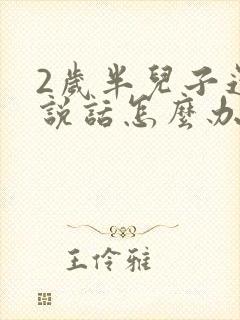 2歲半兒子
說話怎麼办
王伶雅